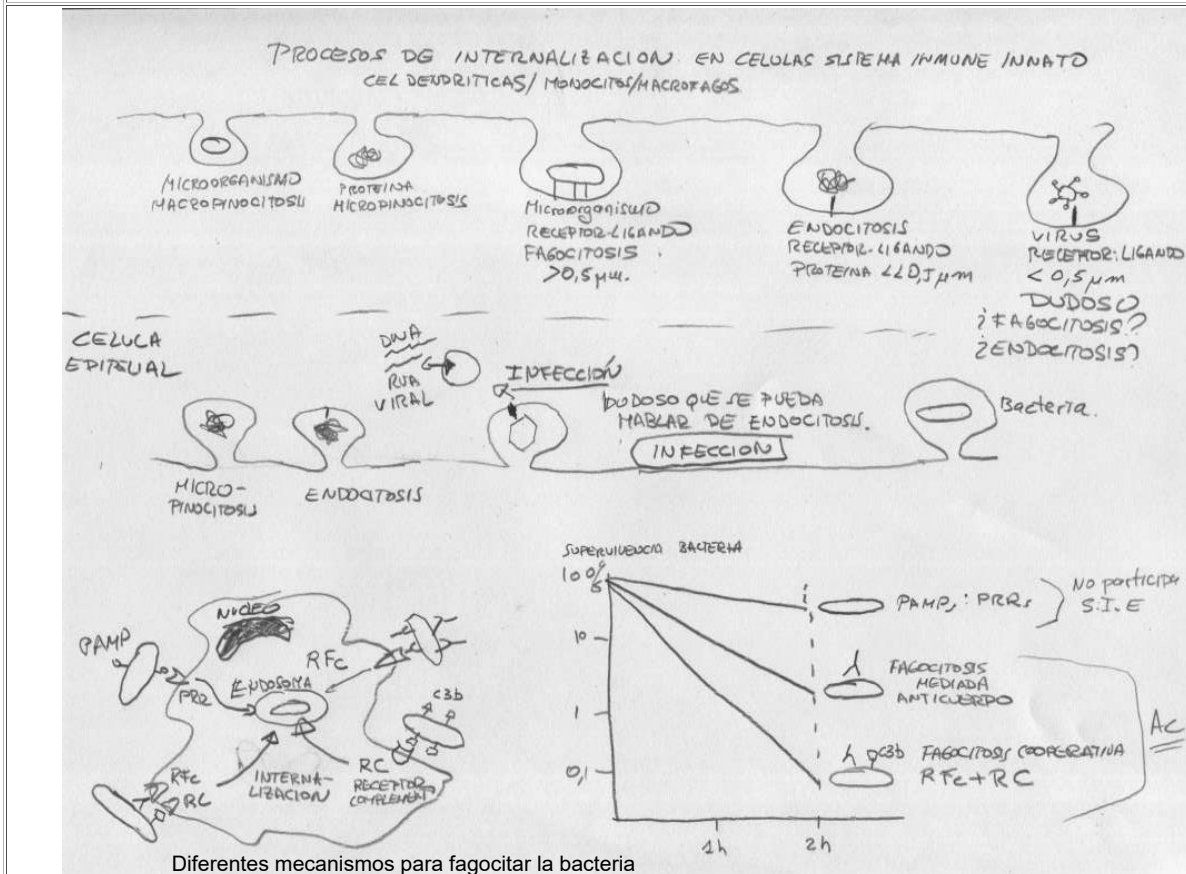 PROCESOS DE INTERNALIZACION EN CELULAS SISTEMA INMUNE INNATO
CEL DENDRITICAS/MONOCITOS/MACROFAGOS
MICROORGANISMO
MACROPINOCITOSIS
PROTEINA
MICROPINOCITOSIS
MicroorganisMO
RECEPTOR-LIGANDO
FAGOCITOSIS
>0,5 μm.
ENDOCITOSIS
RECEPTOR-LIGANDO
PROTEINA <<0,5 μm
VIRUS
RECEPTOR:LIGANDO
< 0,5 μm
DUDOSO
¿FAGOCITOSIS?
¿ENDOCITOSIS?
CELULA
EPITELIAL
DNA
RNA
VIRAL
INFECCIÓN
DUDOSO QUE SE PUEDA
HABLAR DE ENDOCITOSIS.
INFECCION
Bacteria.
MICRO-
PINOCITOSIS
ENDOCITOSIS
PAMP
NUCLEO
PRR
ENDOSOMA
RFc
C3b
RFc
RC
INTERNA-
LIZACION
RC
RECEPTOR
COMPLEMENT
SUPERVIVENCIA BACTERIA
100%
10
1
0,1
1h
2h
PAMPs : PRRs
No participa
S.I.E
FAGOCITOSIS
MEDIADA
ANTICUERPO
C3b FAGOCITOSIS COOPERATIVA
RFc+RC
Ac
Diferentes mecanismos para fagocitar la bacteria